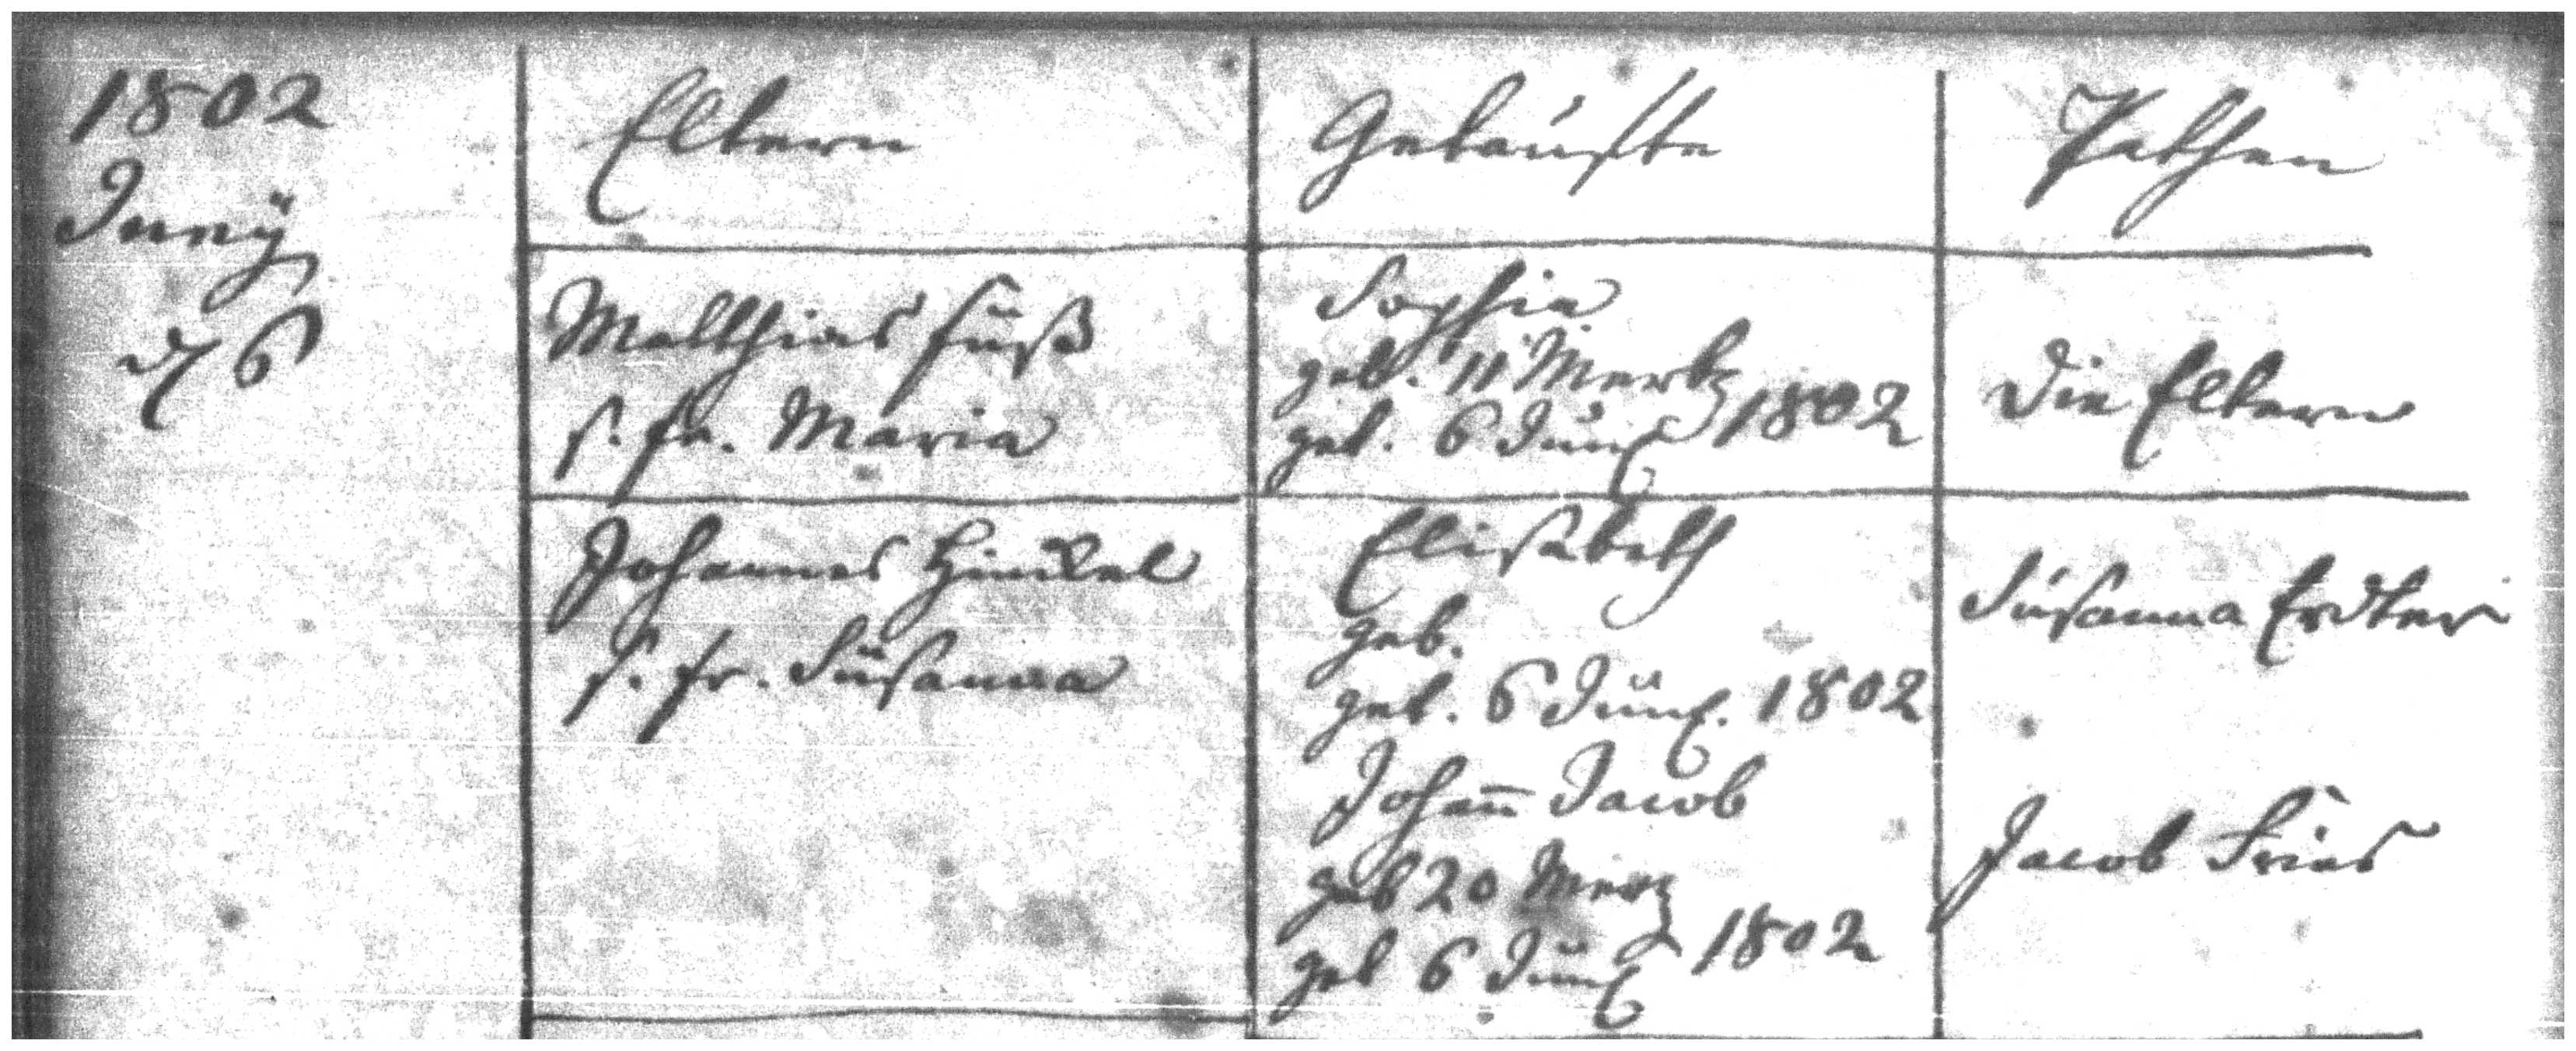 1802
Juny
d 6
Eltern
Getaufte
Pathen
Matthias Fuß
s. fr. Maria
Sophia
geb. 11 Mertz
get. 6 Juny 1802
Die Eltern
Johannes Hinckel
s. fr. Susanna
Elisabeth
geb.
get. 6 Juny. 1802
Susanna
Johan̅ Jacob
geb 20 Merz
get 6 Juny 1802
Jacob Fries